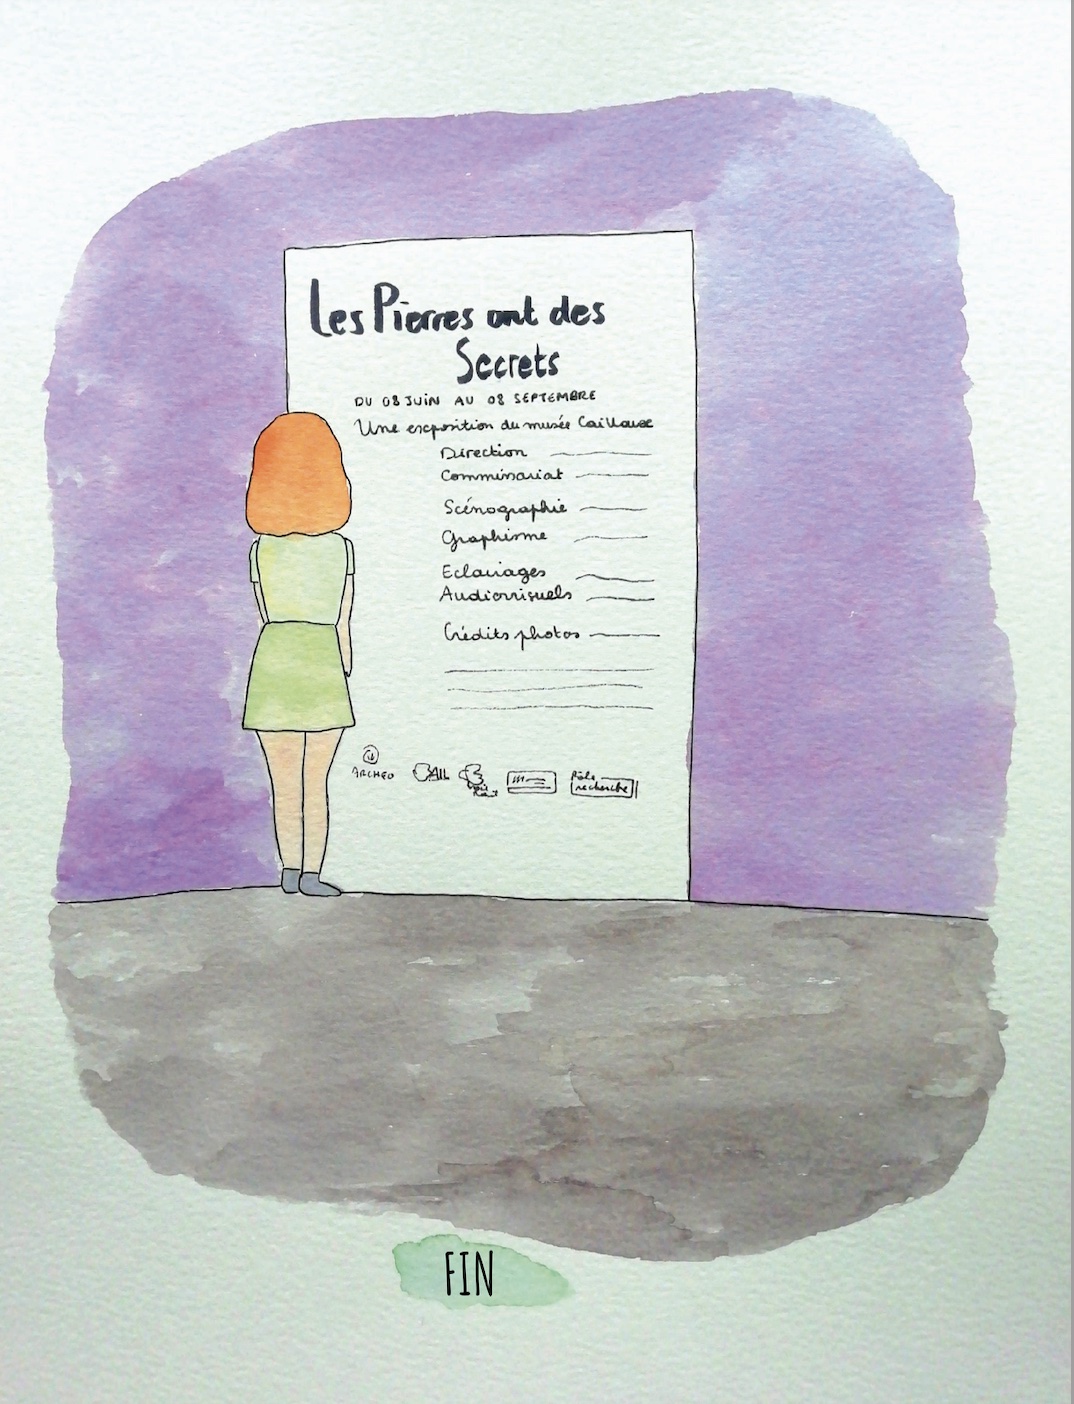 Les Pierres ont des
Secrets
DU 08 JUIN AU 08 SEPTEMBRE
Une exposition du musée Caillouxe
Direction
Commissariat
Scénographie
Graphisme
Eclairages
Audiovisuels
Crédits photos
ARCHEO
Pôle
recherche
FIN